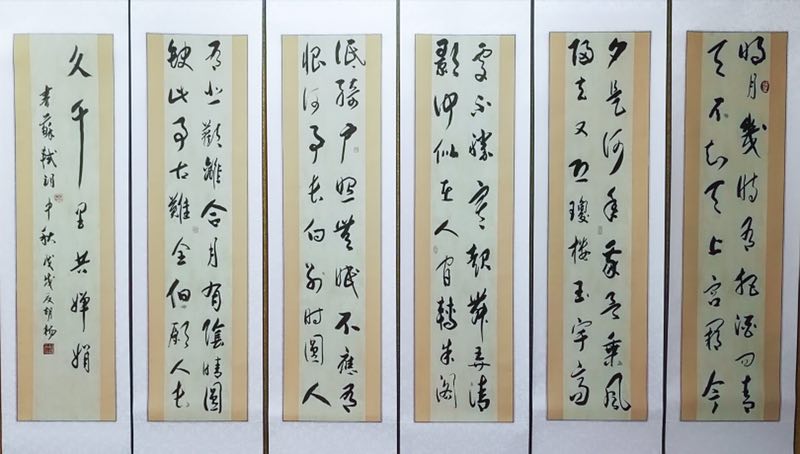 明月幾時有把酒問青
天不知天上宮闕今
夕是何年我欲乘風
歸去又恐瓊樓玉宇高
處不勝寒起舞弄清
影何似在人間轉朱閣
低綺戶照無眠不應有
恨何事長向別時圓人
有悲歡離合月有陰晴圓
缺此事古難全但願人長
久千里共嬋娟
書蘇軾詞中秋戊戌夏胡楊